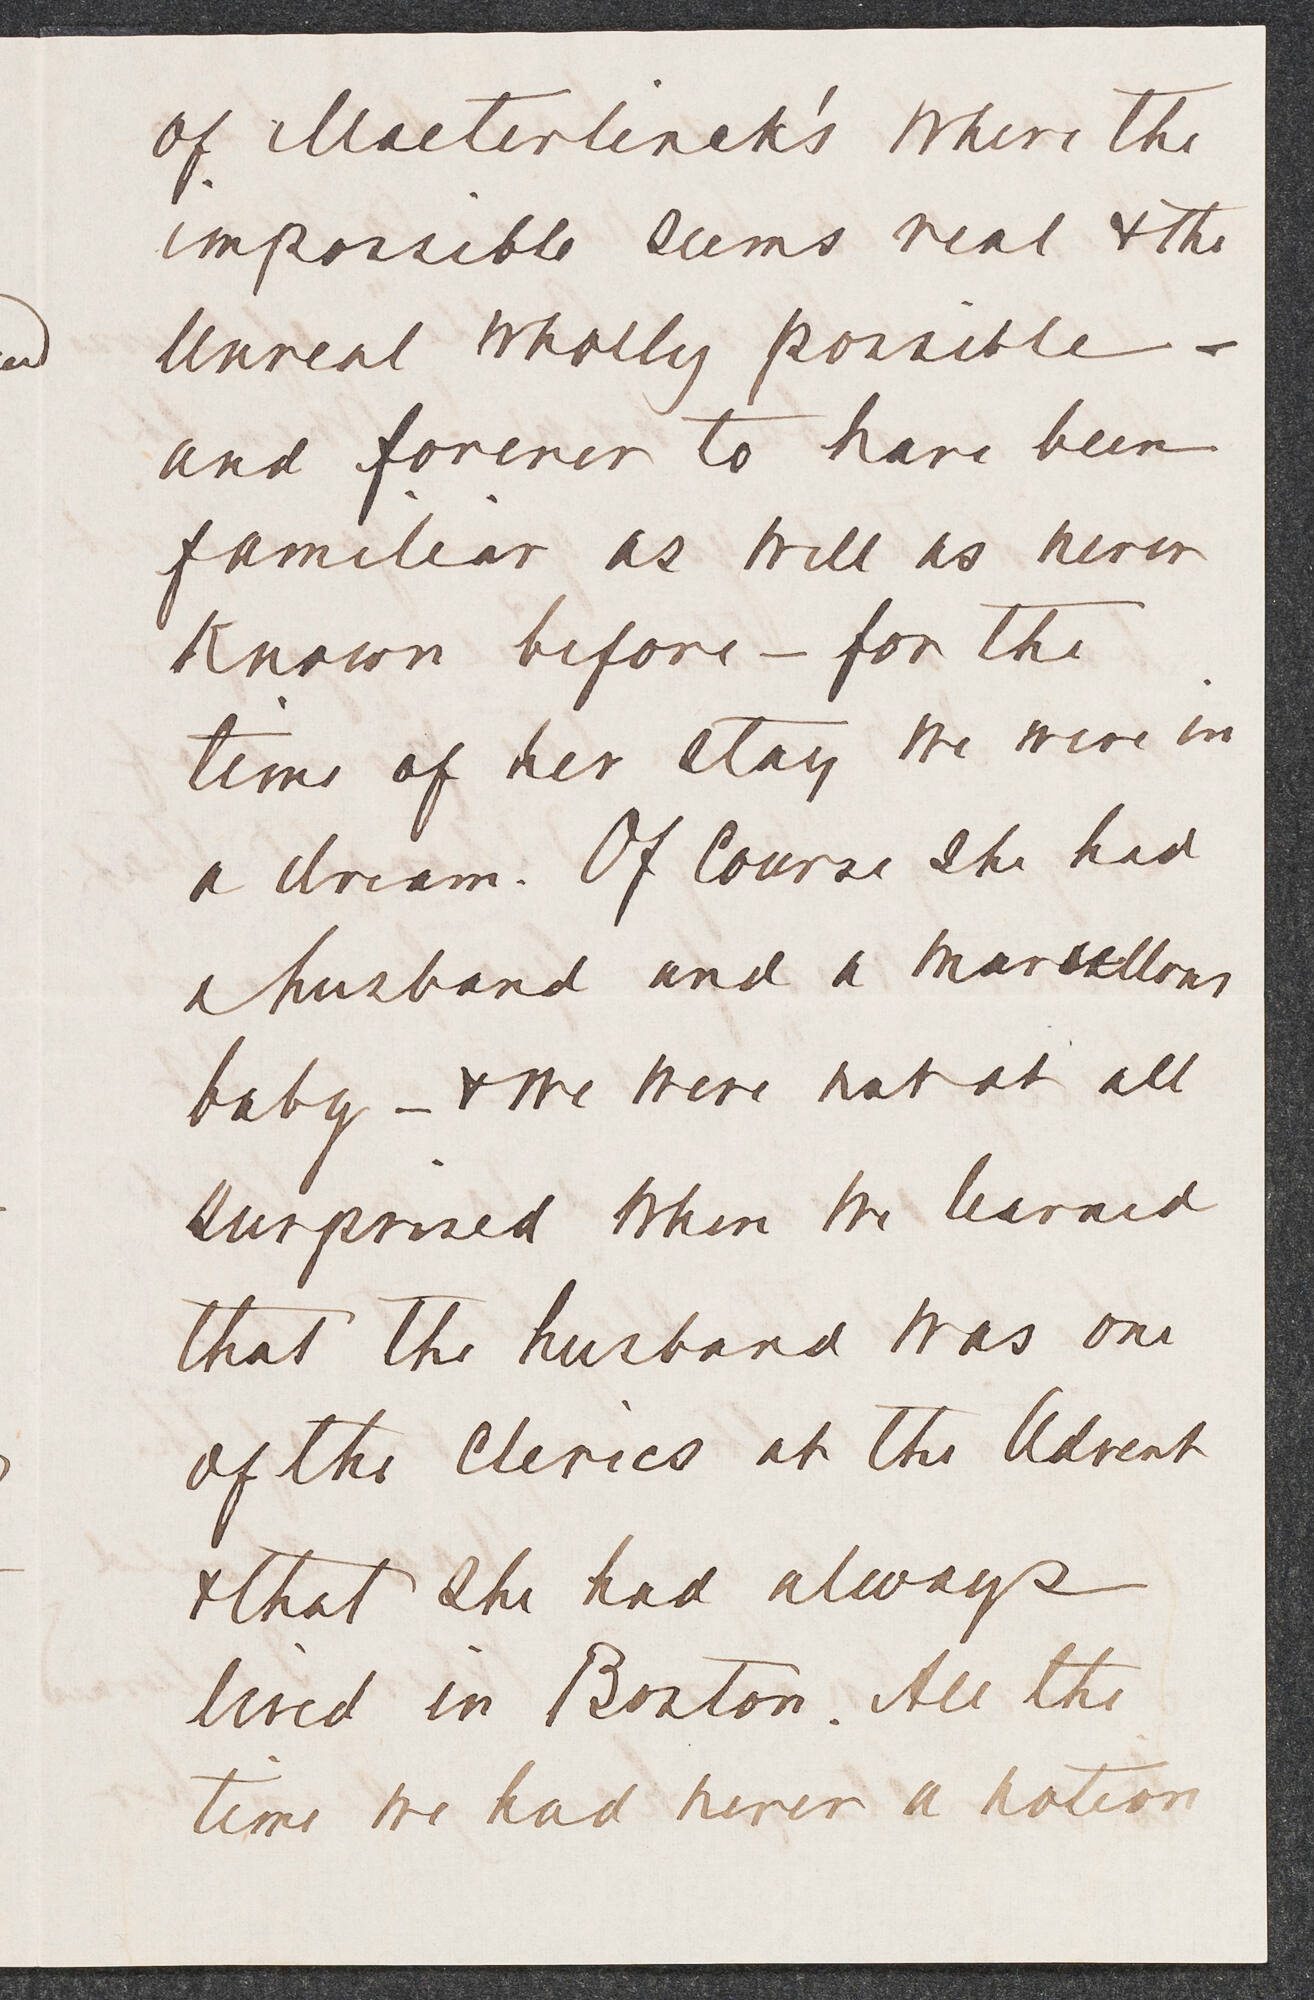 of Maeterlinck's where the
impossible seems real & the
Unreal wholly possible –
and forever to have been
familiar as well as never
known before – for the
time of her stay we were in
a dream. Of Course she had
a husband and a marvellous
baby – & we were not at all
surprised when we learned
that the husband was one
of the clerics at the Advent
& that she had always
lived in Boston. All the
time we had never a notion